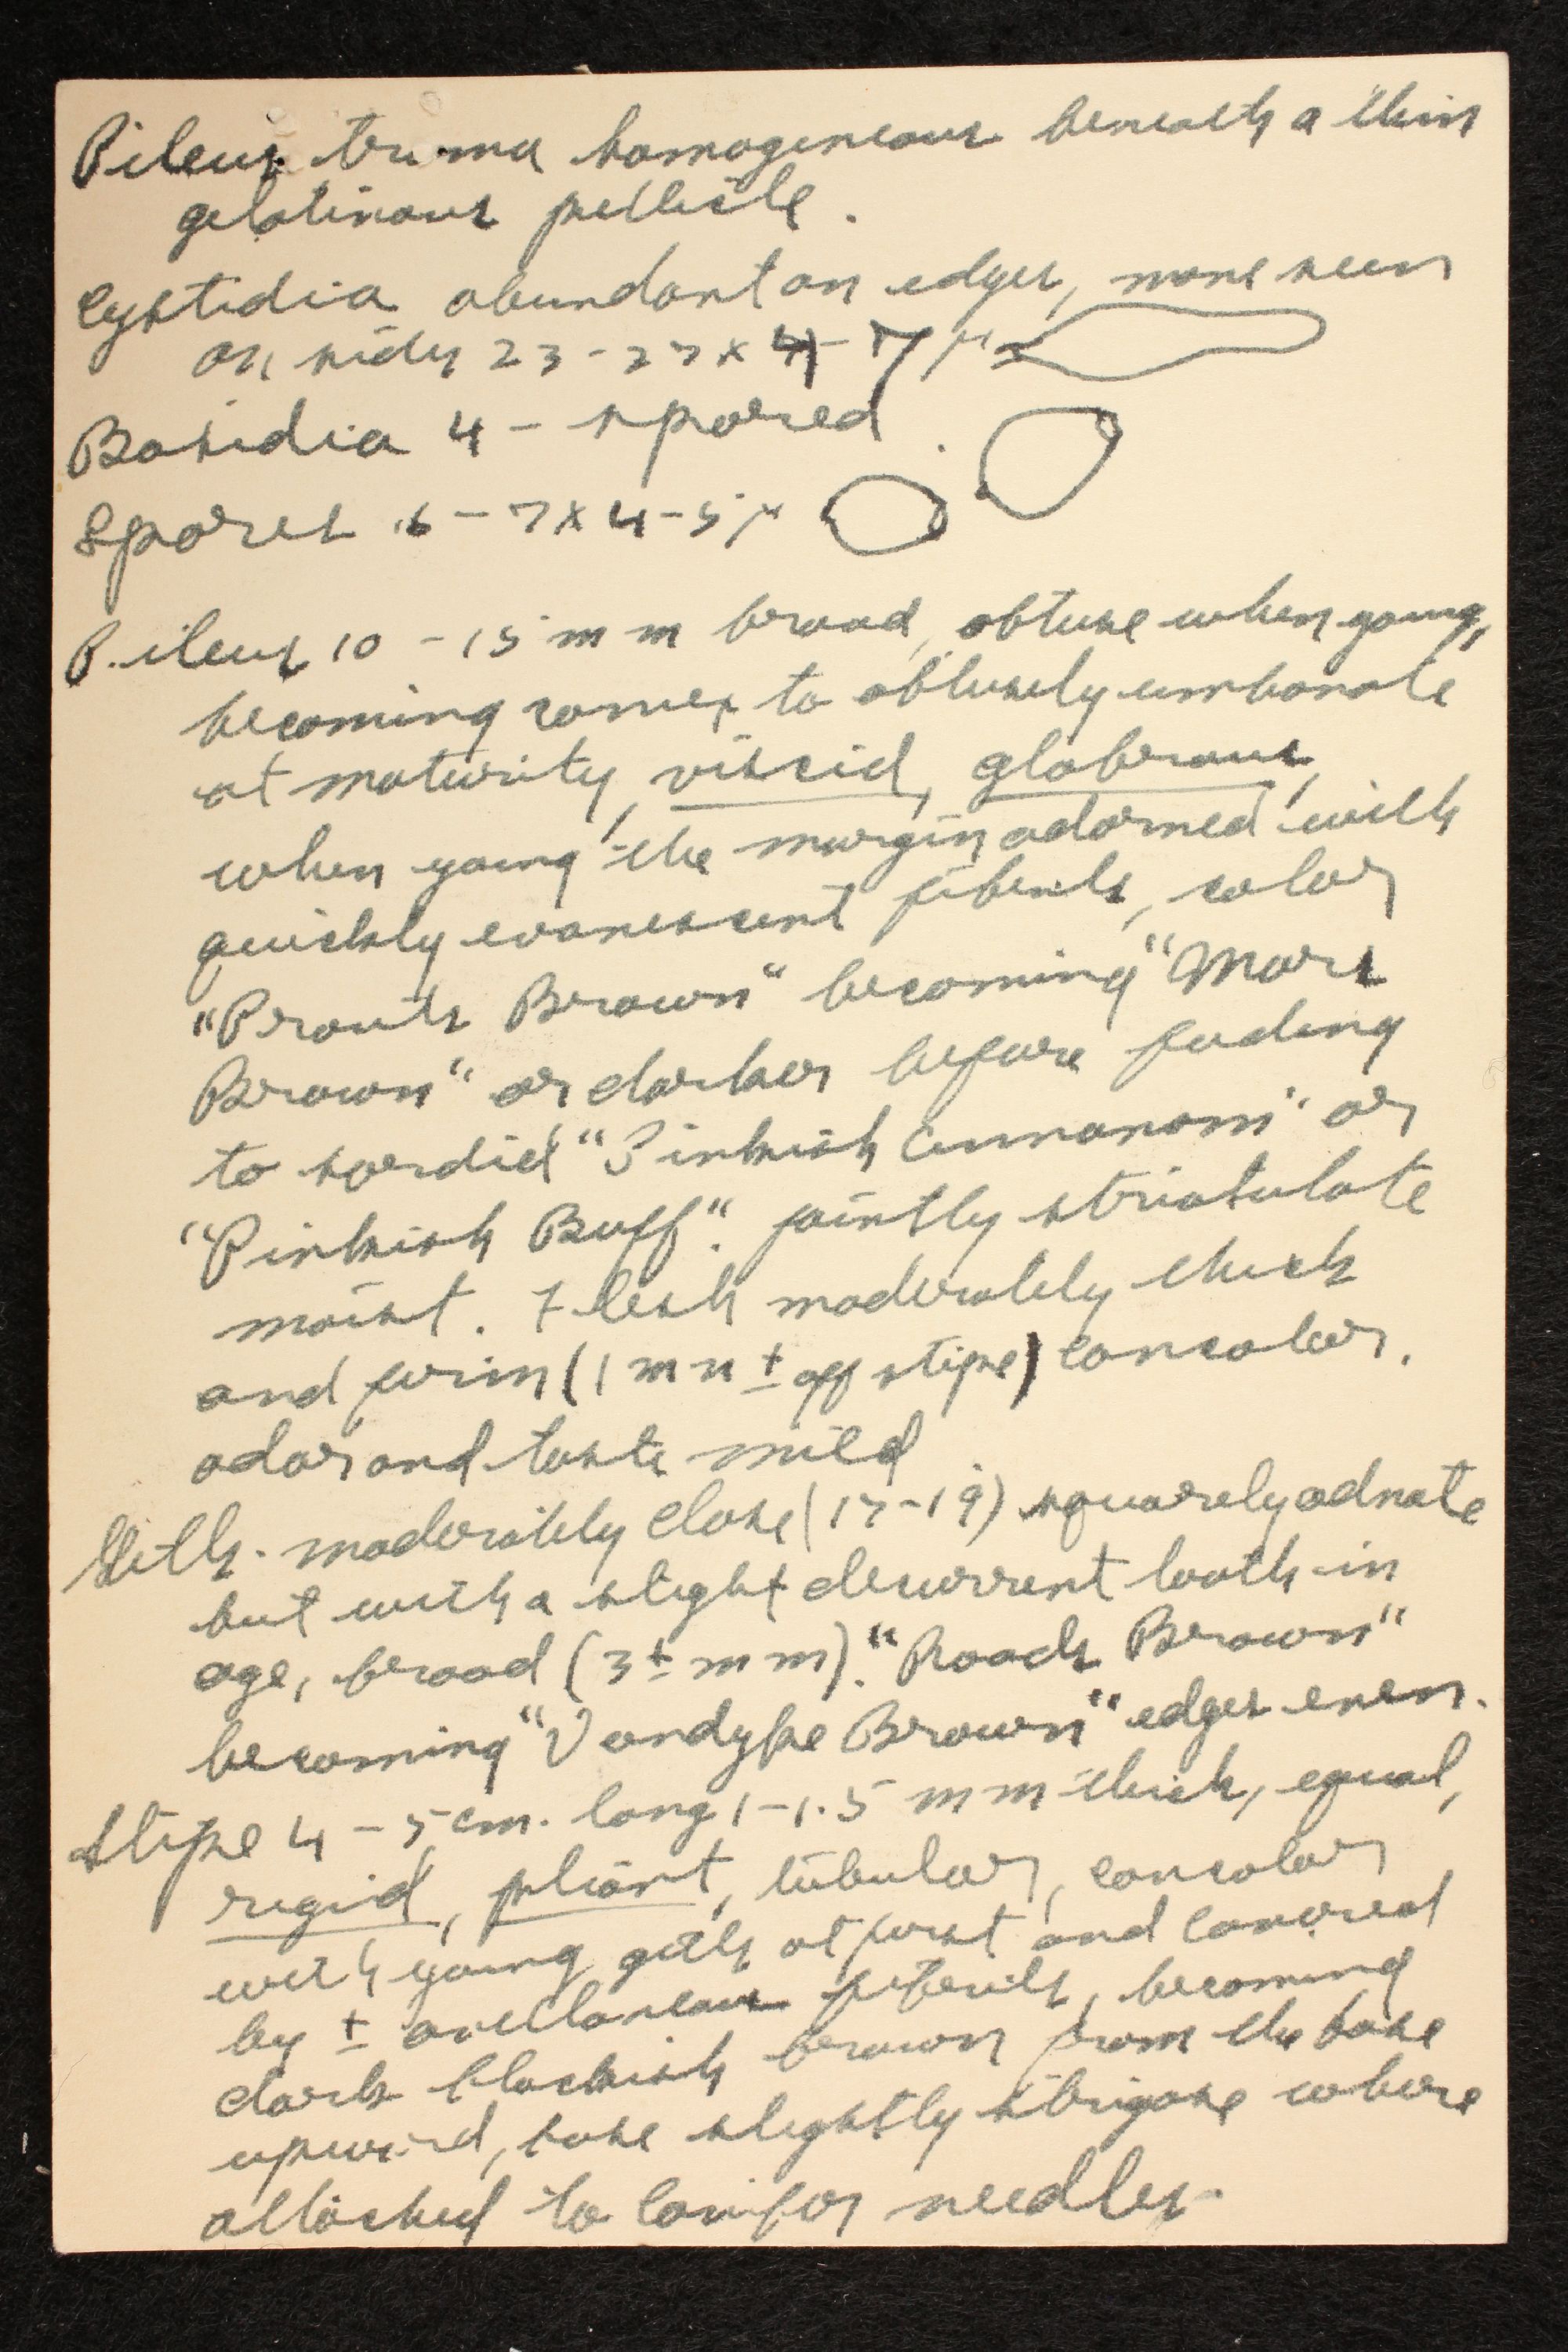 Pileus trama homogeneous beneath a thin
gelatinous pellicle.
Cystidia abundant on edges, none seen
on sides 23-27 x 4-7 μ
Basidia 4-spored
Spores 6-7 x 4-5 μ
Pileus 10-15 mm broad, obtuse when young,
becoming convex to obtusely umbonate
at maturity, viscid, glabrous,
when young the margin adorned with
quickly evanescent fibrils, color
"Prouts Brown" becoming "Mars
Brown" or darker before fading
to sordid "Pinkish Cinnanom" or
"Pinkish Buff". faintly striatulate
moist. Flesh moderately thick
and firm (1 mm ± off stipe) concolor.
odor and taste mild
Gills moderately close (17-19) squarely adnate
but with a slight decurrent tooth in
age, broad (3 ± mm). "Roods Brown"
becoming "Vandyke Brown" edges even.
Stipe 4-5 cm. long 1-1.5 mm thick, equal,
rigid, pliant, tubular, concolor
with young gills at first and covered
by ± avellaneous fibrils, becoming
dark blackish brown from the base
upward, base slightly strigose where
attached to conifor needles.